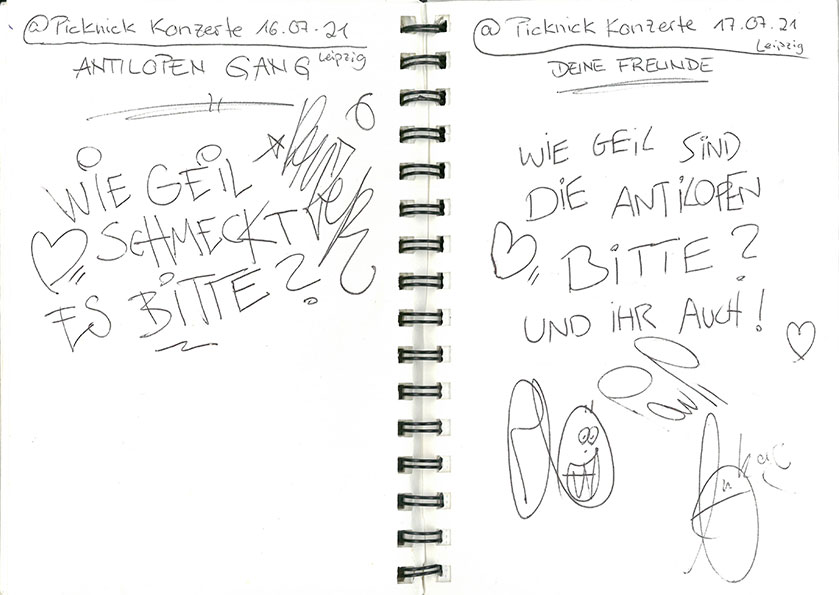 @Picknick Konzerte 16.07.21
Leipzig
ANTILOPEN GANG
WIE GEIL
SCHMECKT
ES BITTE?
@ Picknick Konzerte 17.07.21
Leipzig
DEINE FREUNDE
WIE GEIL SIND
DIE ANTILOPEN
BITTE?
UND IHR AUCH!